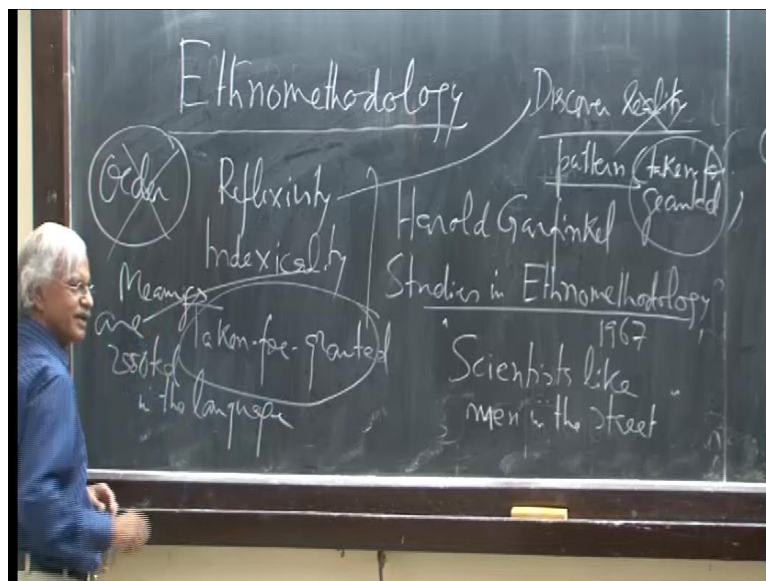 Ethnomethodology
Order
Reflexivity
Indexicality
Meanings
are
in the language
taken-for-granted
Discover reality
pattern (taken for
granted)
Harold Garfinkel
Studies in Ethnomethodology
1967
"Scientists like
men in the street"